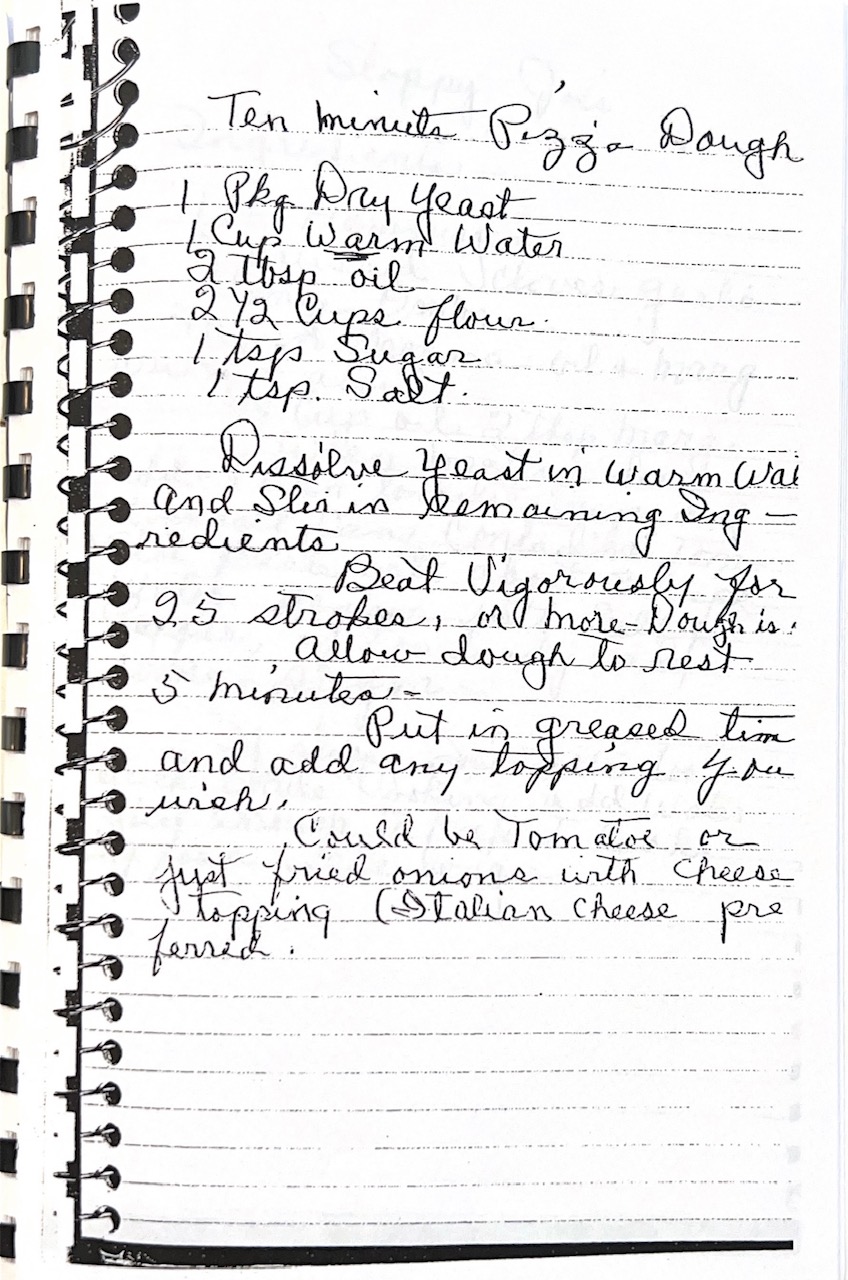 Ten minute Pizza Dough
1 Pkg Dry Yeast
1 Cup Warm Water
2 tbsp oil
2 1/2 Cups flour.
1 tsp Sugar
1 tsp. Salt.
Dissolve Yeast in Warm Wat
and Stir in Remaining Ing –
redients
Beat Vigorously for
25 strokes, or more – Dough is.
Allow dough to rest
5 minutes –
Put in greased tin
and add any topping you
wish.
Could be Tomatoe or
just fried onions with cheese
topping (Italian cheese pre
ferred.